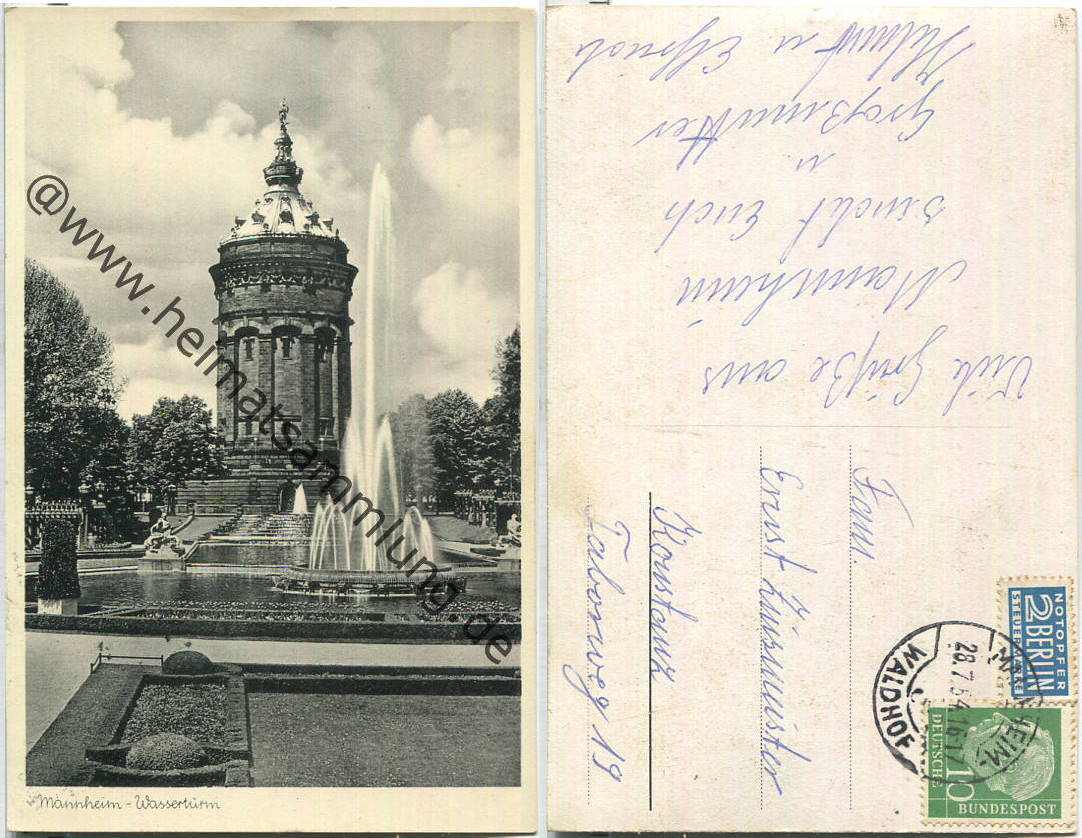 @www.heimatsammlung.de
Mannheim - Wasserturm
Viele Grüße aus
Mannheim
sendet Euch
u
Großmutter
Helmut u Elfriede
Fam.
Ernst
Konstanz
Taborweg 19
NOTOPFER
2 BERLIN
STEUERMARKE
MANNHEIM-
WALDHOF
28.7.54.16-17
DEUTSCHE
BUNDESPOST
10